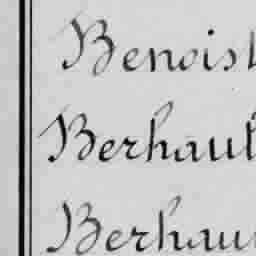 Benoist
Berhaul
Berhau